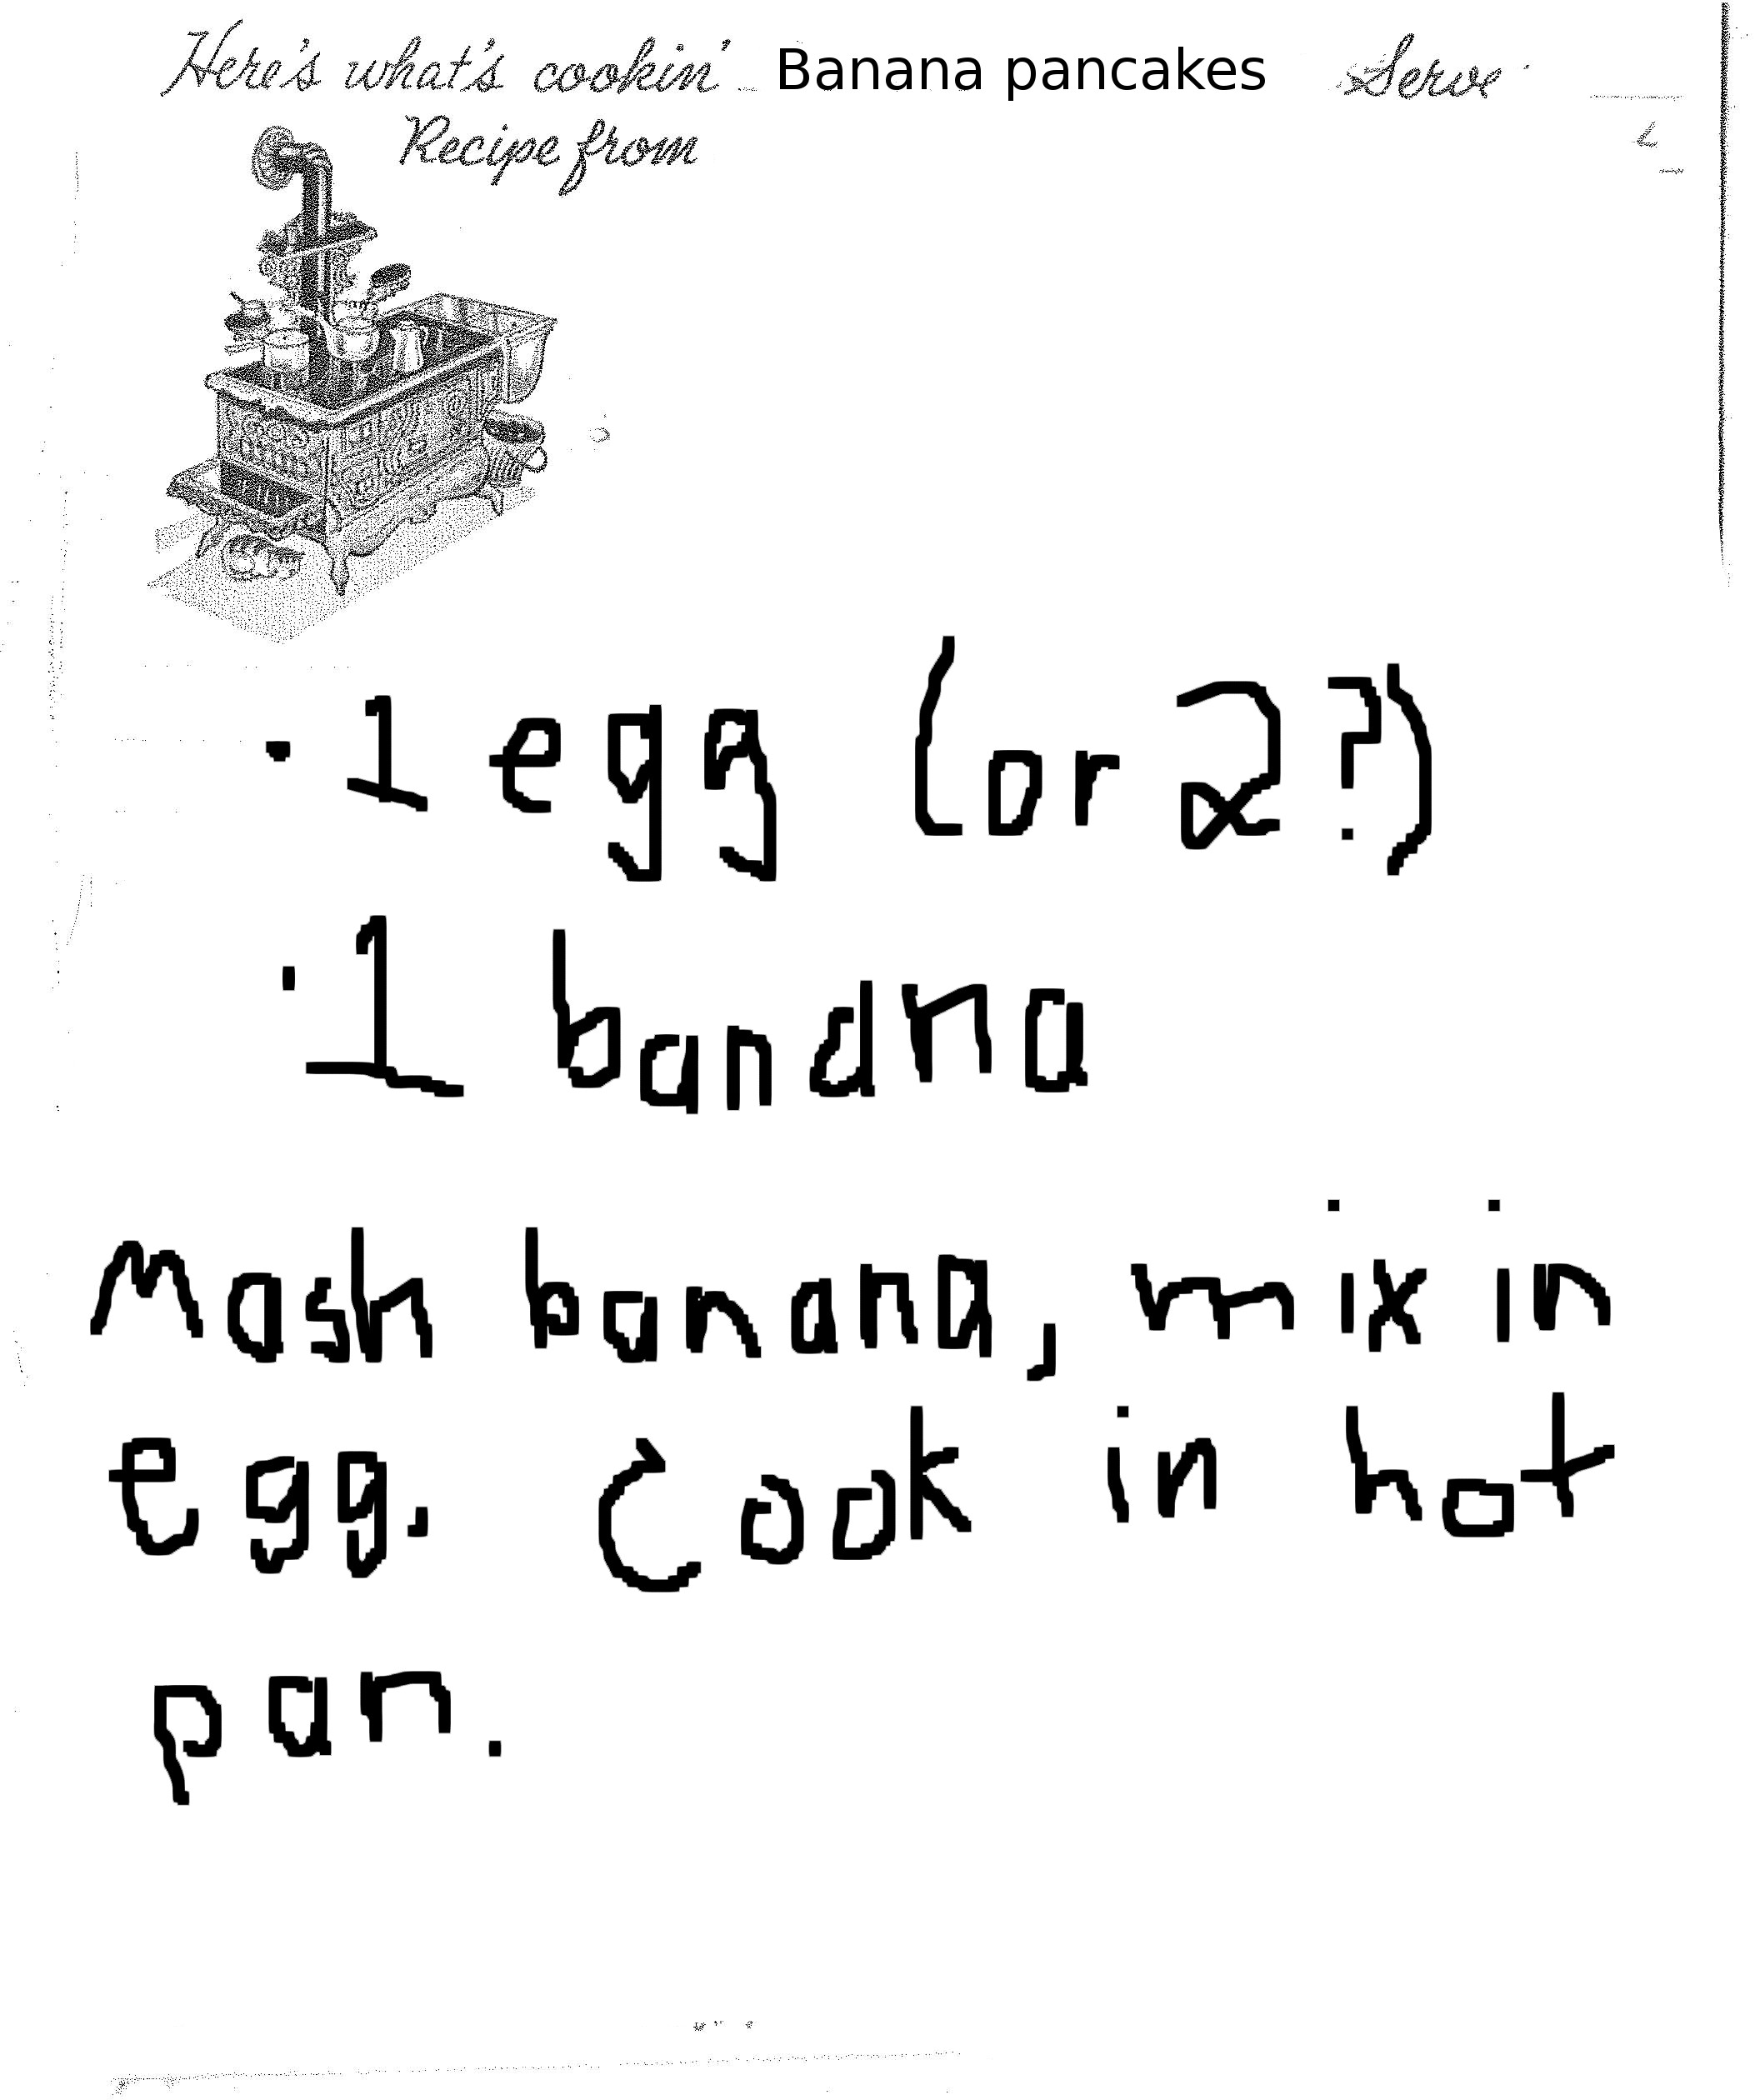 Here's what's cookin' Banana pancakes Serve
Recipe from
· 1 egg (or 2?)
· 1 banana
Mash banana, mix in
egg. Cook in hot
pan.